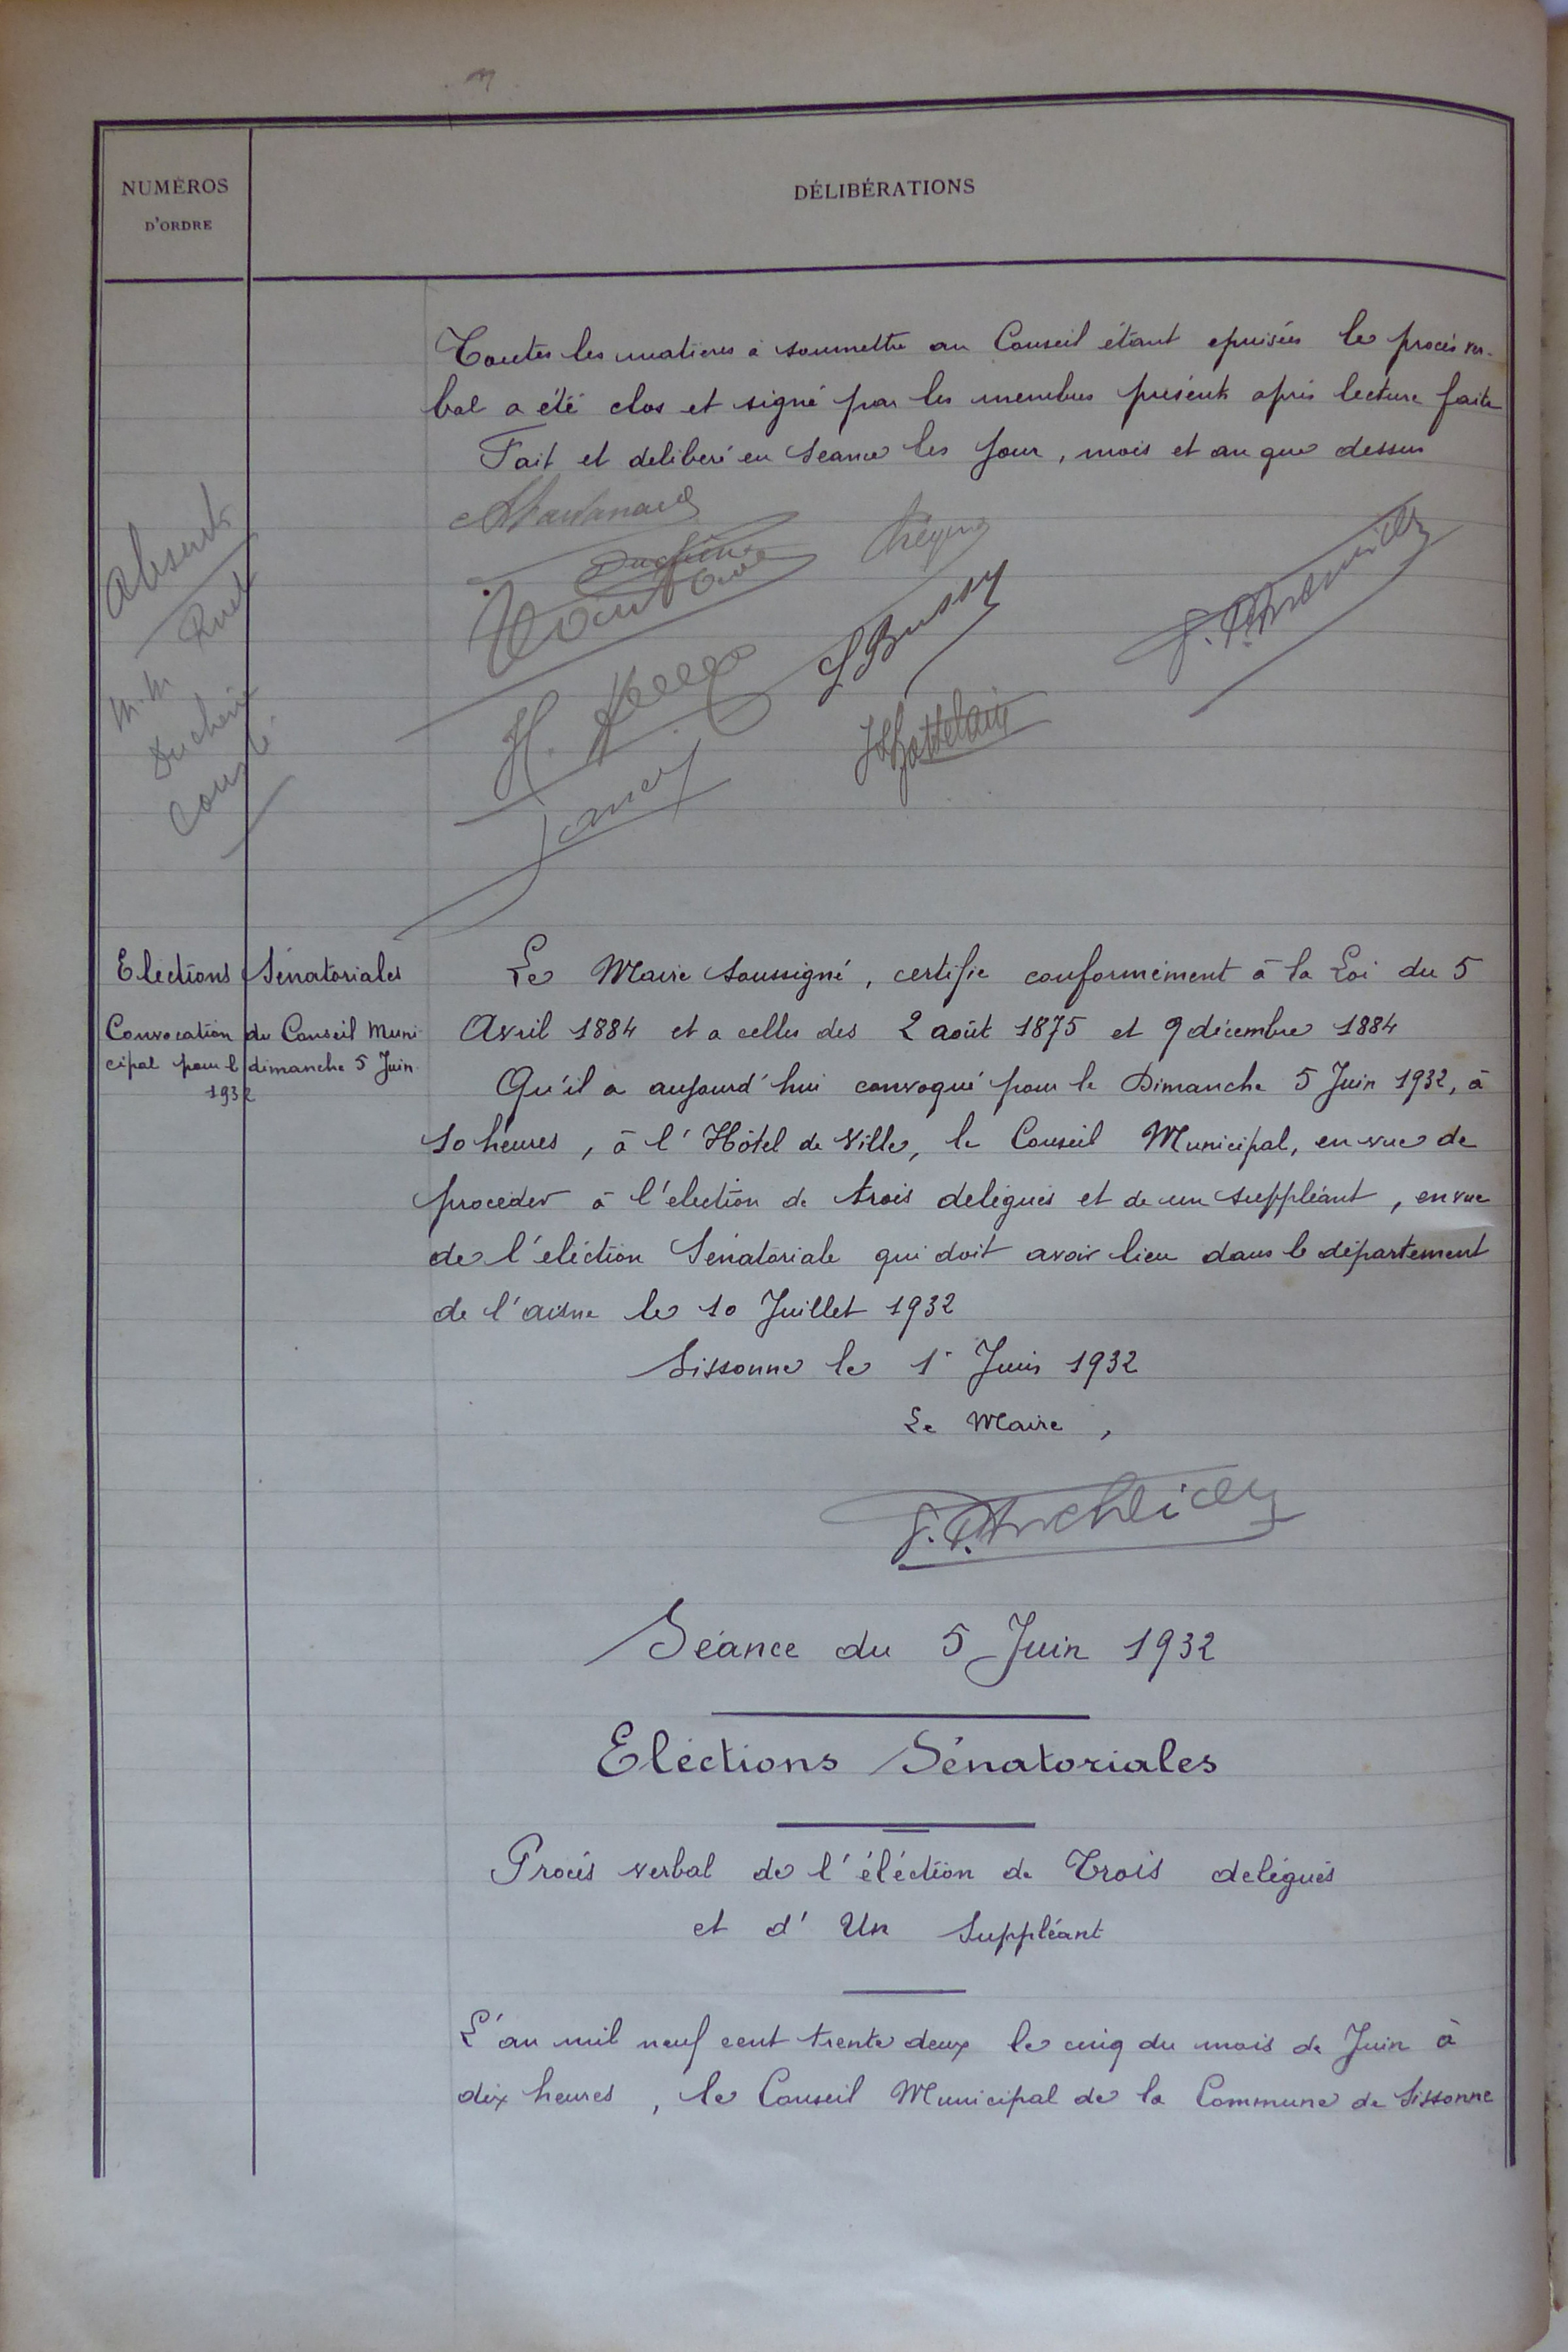 NUMÉROS
D'ORDRE
DÉLIBÉRATIONS
Toutes les matieres à soumettre au Conseil étant epuisées le procès ver-
bal a été clos et signé par les membres présents après lecture faite
Fait et deliberé en Seance les Jour, mois et an que dessus
absents
Ruel
M.M
Duchene
L Bussy
JChattelain
H.
Jancy
Elections Sénatoriales
Convocation du Conseil Muni-
cipal pour le dimanche 5 Juin
1932
Le Maire Soussigné, certifie conformément à la Loi du 5
Avril 1884 et a celles des 2 août 1875 et 9 décembre 1884
Qu'il a aujourd'hui convoqué pour le Dimanche 5 Juin 1932, à
10 heures, à l'Hôtel de Ville, le Conseil Municipal, en vue de
proceder à l'election de trois delégués et de un suppléant, en vue
de l'eléction Sénatoriale qui doit avoir lieu dans le département
de l'aisne le 10 Juillet 1932
Sissonne le 1er Juin 1932
Le Maire,
Séance du 5 Juin 1932
Eléctions Sénatoriales
Procès verbal de l'éléction de Trois delégués
et d'Un Suppléant
L'an mil neuf cent trente deux le cinq du mois de Juin à
dix heures, le Conseil Municipal de la Commune de Sissonne